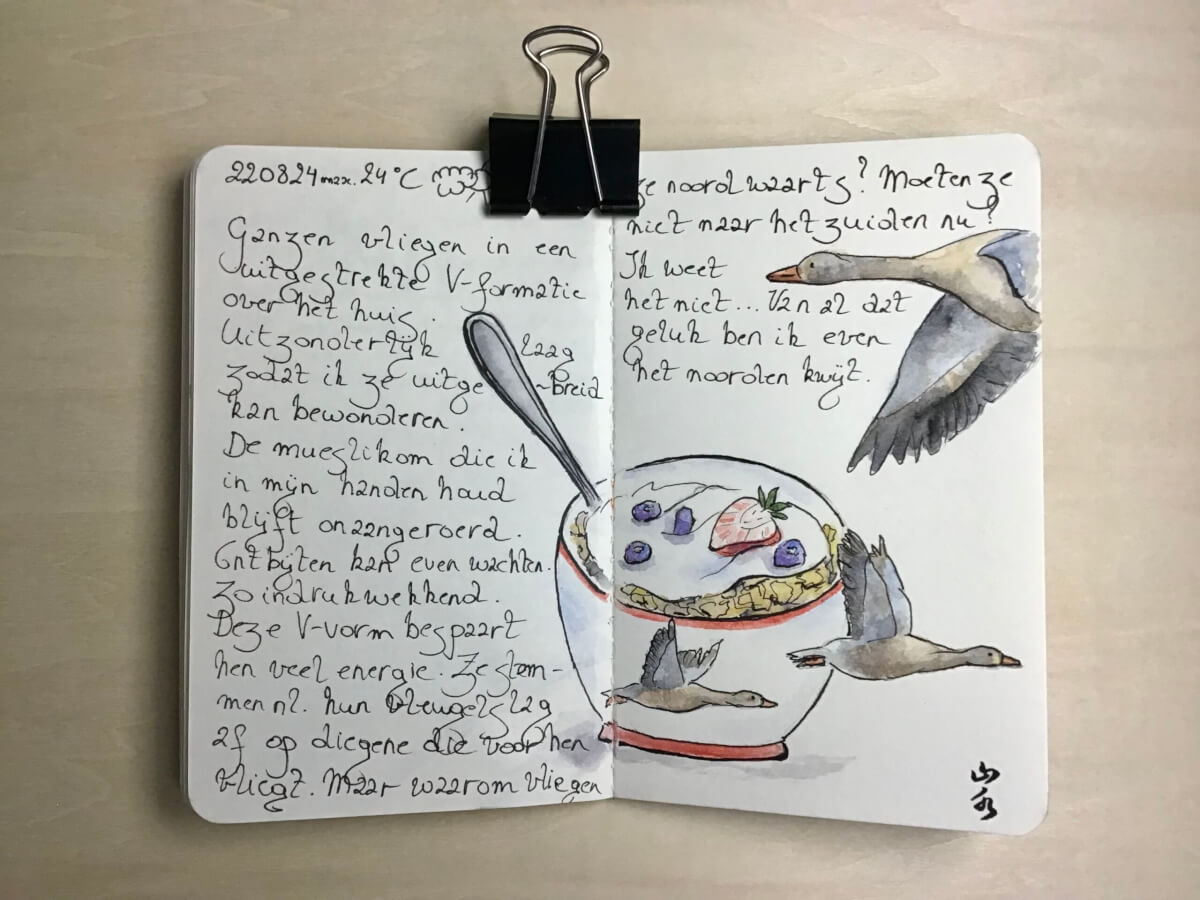 220824 max. 24°C
Ganzen vliegen in een
uitgestrekte V-formatie
over het huis.
Uitzonderlijk laag
zodat ik ze uitge~breid
kan bewonderen.
De mueslikom die ik
in mijn handen houd
blijft onaangeroerd.
Ontbijten kan even wachten.
Zo indrukwekkend.
Deze V-vorm bespaart
hen veel energie. Ze stem-
men nl. hun vleugelslag
af op diegene die voor hen
vliegt. Maar waarom vliegen
ze noordwaarts? Moeten ze
niet naar het zuiden nu?
Ik weet
het niet... Van al dat
geluk ben ik even
het noorden kwijt.
山
水